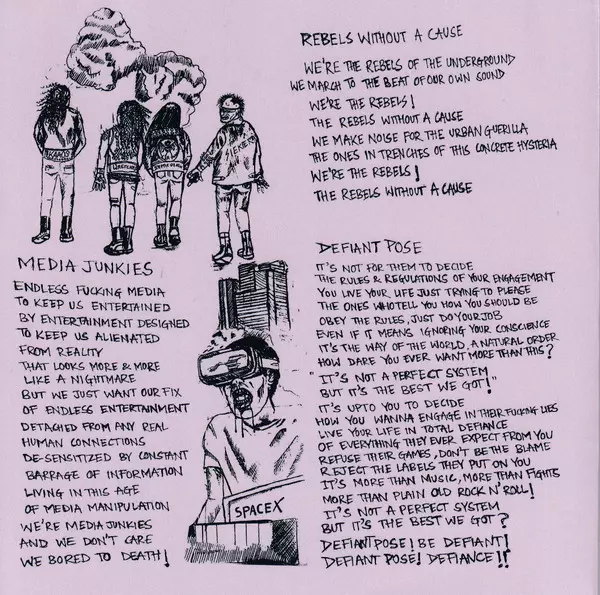 REBELS WITHOUT A CAUSE
WE'RE THE REBELS OF THE UNDERGROUND
WE MARCH TO THE BEAT OF OUR OWN SOUND
WE'RE THE REBELS!
THE REBELS WITHOUT A CAUSE
WE MAKE NOISE FOR THE URBAN GUERILLA
THE ONES IN TRENCHES OF THIS CONCRETE HYSTERIA
WE'RE THE REBELS!
THE REBELS WITHOUT A CAUSE
MEDIA JUNKIES
ENDLESS FUCKING MEDIA
TO KEEP US ENTERTAINED
BY ENTERTAINMENT DESIGNED
TO KEEP US ALIENATED
FROM REALITY
THAT LOOKS MORE & MORE
LIKE A NIGHTMARE
BUT WE JUST WANT OUR FIX
OF ENDLESS ENTERTAINMENT
DETACHED FROM ANY REAL
HUMAN CONNECTIONS
DE-SENSITIZED BY CONSTANT
BARRAGE OF INFORMATION
LIVING IN THIS AGE
OF MEDIA MANIPULATION
WE'RE MEDIA JUNKIES
AND WE DON'T CARE
WE BORED TO DEATH!
SPACEX
DEFIANT POSE
IT'S NOT FOR THEM TO DECIDE
THE RULES & REGULATIONS OF YOUR ENGAGEMENT
YOU LIVE YOUR LIFE JUST TRYING TO PLEASE
THE ONES WHO TELL YOU HOW YOU SHOULD BE
OBEY THE RULES, JUST DO YOUR JOB
EVEN IF IT MEANS IGNORING YOUR CONSCIENCE
IT'S THE WAY OF THE WORLD, A NATURAL ORDER
HOW DARE YOU EVER WANT MORE THAN THIS?
"IT'S NOT A PERFECT SYSTEM
BUT IT'S THE BEST WE GOT!"
IT'S UPTO YOU TO DECIDE
HOW YOU WANNA ENGAGE IN THEIR FUCKING LIES
LIVE YOUR LIFE IN TOTAL DEFIANCE
OF EVERYTHING THEY EVER EXPECT FROM YOU
REFUSE THEIR GAMES, DON'T BE THE BLAME
REJECT THE LABELS THEY PUT ON YOU
IT'S MORE THAN MUSIC, MORE THAN FIGHTS
MORE THAN PLAIN OLD ROCK N' ROLL!
IT'S NOT A PERFECT SYSTEM
BUT IT'S THE BEST WE GOT?
DEFIANT POSE! BE DEFIANT!
DEFIANT POSE! DEFIANCE!!